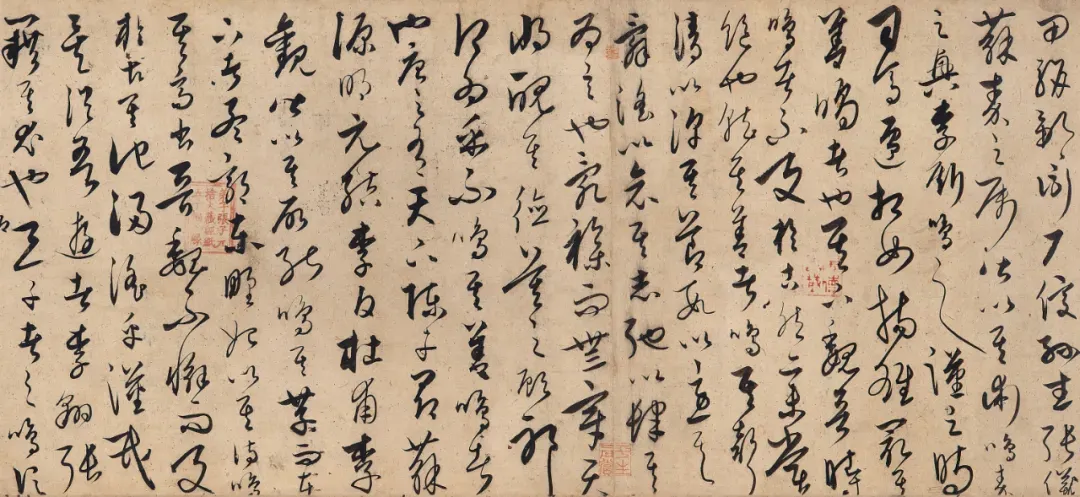 田駢鄒衍尸佼孫武張儀
蘇秦之屬皆以其術鳴秦
之興李斯鳴之漢之時
司馬遷相如揚雄最其
善鳴者也其下魏晉時
鳴者不及於古然亦未嘗
絕也就其善者鳴其聲
清以浮其節數以急其
辭淫以哀其志弛以肆其
為言也亂雜而無章天
將醜其德莫之顧邪
何為乎不鳴其善鳴者
也唐之有天下陳子昂蘇
源明元結李白杜甫李
觀皆以其所能鳴其存而在
下者孟郊東野始以其詩鳴
其高出晉魏不懈而及
於古其他浸淫乎漢氏
矣從吾遊者李翱張
籍其尤也三子者之鳴信